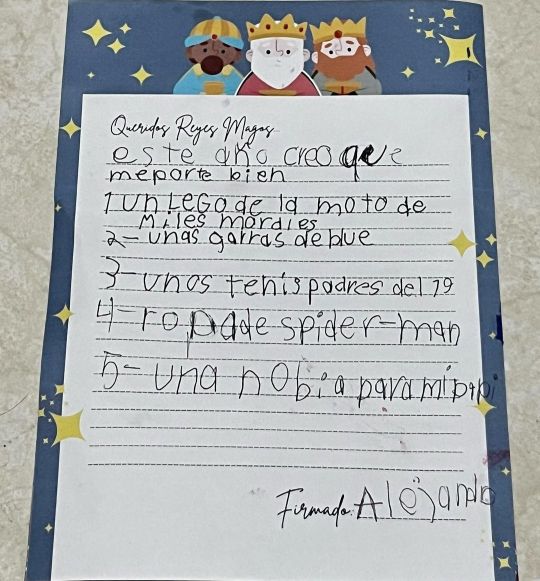 Queridos Reyes Magos
este año creo que
me porte bien
1 un LEGO de la moto de
Miles mordles
2- unas garras de blue
3- unos tenis padres del 19
4- ropa de spider-man
5- una nobia para mi papi
Firmado: Alejando